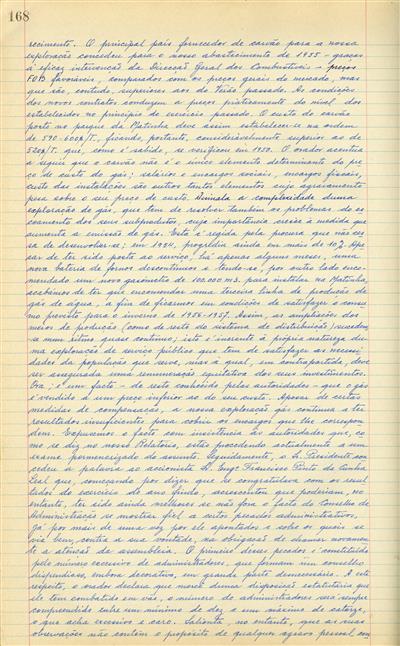 168
recimento. O principal país fornecedor de carvão para a nossa
exploração concedeu para o nosso abastecimento de 1955 - graças
à eficaz intervenção da Direcção Geral dos Combustíveis - preços
FOB favoráveis, comparados com os preços gerais do mercado, mas
que são, contudo, superiores aos do Verão passado. As condições
dos novos contratos conduzem a preços pràticamente do nível dos
estabelecidos no princípio do exercício passado. O custo do carvão
posto no parque da Matinha deve assim estabelecer-se na ordem
de 590-600$/T. ficando, portanto, consideràvelmente superior ao de
520$/T. que, como é sabido, se verificou em 1950. O orador acentua
a seguir que o carvão não é o único elemento determinante do pre-
ço de custo do gás; salários e encargos sociais, encargos fiscais,
custo das instalações são outros tantos elementos cujo agravamento
pesa sobre o seu preço de custo. Anima a complexidade duma
exploração de gás, que tem de resolver também os problemas do es-
coamento dos seus subprodutos, cuja importância cresce à medida que
aumenta a emissão de gás. Esta é regida pela procura que não ces-
sa de desenvolver-se; em 1954, progrediu ainda em mais de 10%. Ape-
sar de ter sido posta ao serviço, há apenas alguns meses, uma
nova bateria de fornos descontínuos e tendo-se, por outro lado enco-
mendado um novo gasómetro de 100.000 m3. para instalar na Matinha,
acabámos de ter que encomendar uma terceira linha de produção de
gás de água, a fim de ficarmos em condições de satisfazer o consu-
mo previsto para o inverno de 1956-1957. Assim, as ampliações dos
meios de produção (como de resto do sistema de distribuição) sucedem-
se num ritmo quase contínuo; isto é inerente à própria natureza du-
ma exploração de serviço público que tem de satisfazer as necessi-
dades da população que serve, mas à qual, em contrapartida, deve
ser assegurada uma remuneração equitativa dos seus investimentos.
Ora, é um facto - de resto conhecido pelas autoridades - que o gás
é vendido a um preço inferior ao do seu custo. Apesar de certas
medidas de compensação, a nossa exploração gás continua a ter
resultados insuficientes para cobrir os encargos que lhe correspon-
dem. Expusemos o facto com insistência às autoridades que, co-
mo se diz no nosso Relatório, estão procedendo actualmente a um
exame pormenorizado do assunto. Seguidamente, o Sr. Presidente con-
cedeu a palavra ao accionista Sr. Engº Francisco Pinto da Cunha
Leal que, começando por dizer que se congratulava com os resul-
tados do exercício do ano findo, acrescentou que poderiam, no
entanto, ter sido ainda melhores se não fora o facto do Conselho de
Administração se mostrar fiel a certos pecados administrativos,
já por mais de uma vez por ele apontados e sobre os quais se
via bem, contra a sua vontade, na obrigação de chamar novamen-
te a atenção da assembleia. O primeiro desses pecados é constituído
pelo número excessivo de administradores, que formam um conselho
dispendioso, embora decorativo, em grande parte desnecessário. A este
respeito, o orador declara que numa duma disposição estatutária que
ele tem combatido em vão, o número de administradores será sempre
compreendido entre um mínimo de dez e um máximo de catorze,
o que acha excessivo e caro. Salienta, no entanto, que as suas
observações não contêm o propósito de qualquer agravo pessoal con-